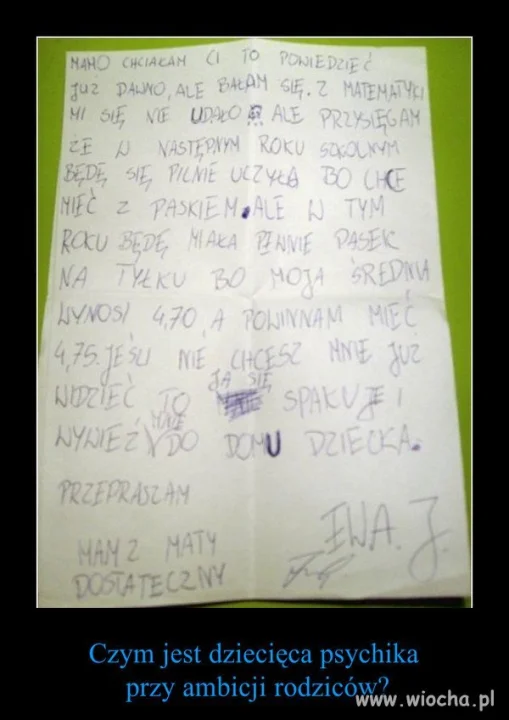 MAMO CHCIAŁAM CI TO POWIEDZIEĆ
JUŻ DAWNO, ALE BAŁAM SIĘ. Z MATEMATYKI
MI SIĘ NIE UDAŁO ALE PRZYSIĘGAM
ŻE W NASTĘPNYM ROKU SZKOLNYM
BĘDĘ SIĘ PILNIE UCZYŁA BO CHCE
MIEĆ Z PASKIEM. ALE W TYM
ROKU BĘDĘ MIAŁA PEWNIE PASEK
NA TYŁKU BO MOJA ŚREDNIA
WYNOSI 4,70, A POWINNAM MIEĆ
4,75. JEŚLI NIE CHCESZ MNIE JUŻ
WIDZIEĆ TO JA SIĘ SPAKUJE I
WYWIEŹ MNIE DO DOMU DZIECKA.
PRZEPRASZAM
EWA. J.
MAM Z MATY
DOSTATECZNY
Czym jest dziecięca psychika
przy ambicji rodziców?
www.wiocha.pl